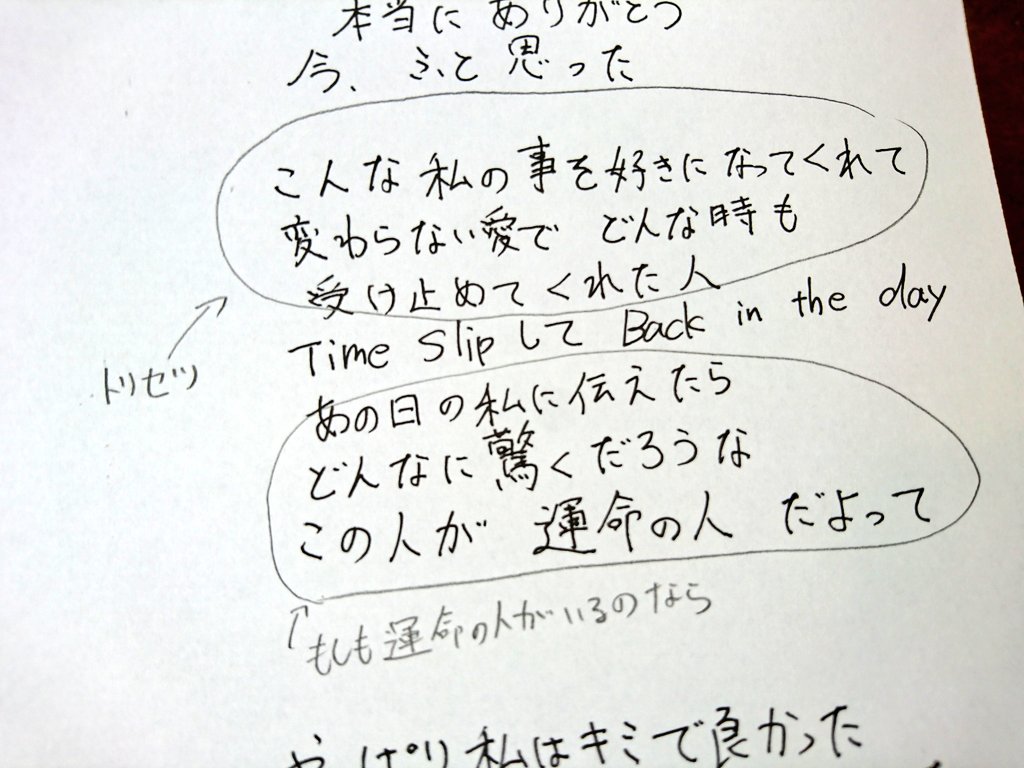 本当に ありがとう
今、ふと思った
こんな私の事を好きになってくれて
変わらない愛で どんな時も
受け止めてくれた人
Time Slipして Back in the day
トリセツ
あの日の私に伝えたら
どんなに驚くだろうな
この人が 運命の人 だよって
もしも運命の人がいるのなら
やっぱり私はキミで良かった